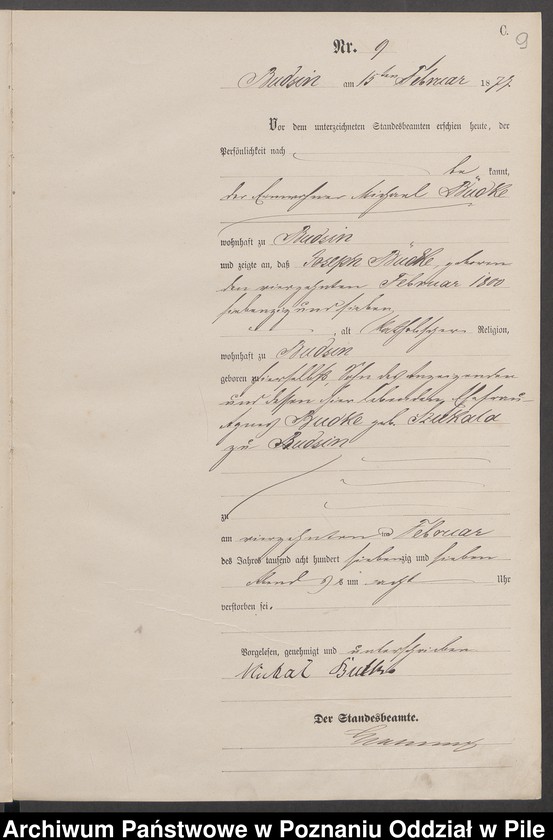 C.
9
Nr. 9
Budsin am 15ten Februar 1877
Vor dem unterzeichneten Standesbeamten erschien heute, der
Persönlichkeit nach
be kannt,
der Einwohner Michael Büdke
wohnhaft zu Budsin
und zeigte an, daß Joseph Büdke geboren
den vierzehnten Februar 1800
siebenzig und sieben
, alt Katholischer Religion,
wohnhaft zu Budsin
geboren hierselbst, Sohn des Anzeigenden
und dessen hier lebenden Ehefrau
Agnes Budke geb. Szukala
zu Budsin
zu
am vierzehnten Februar
des Jahres tausend acht hundert siebenzig und sieben
Abend s um acht Uhr
verstorben sei.
Vorgelesen, genehmigt und unterschrieben
Michal Budke
Der Standesbeamte.
Archiwum Państwowe w Poznaniu Oddział w Pile